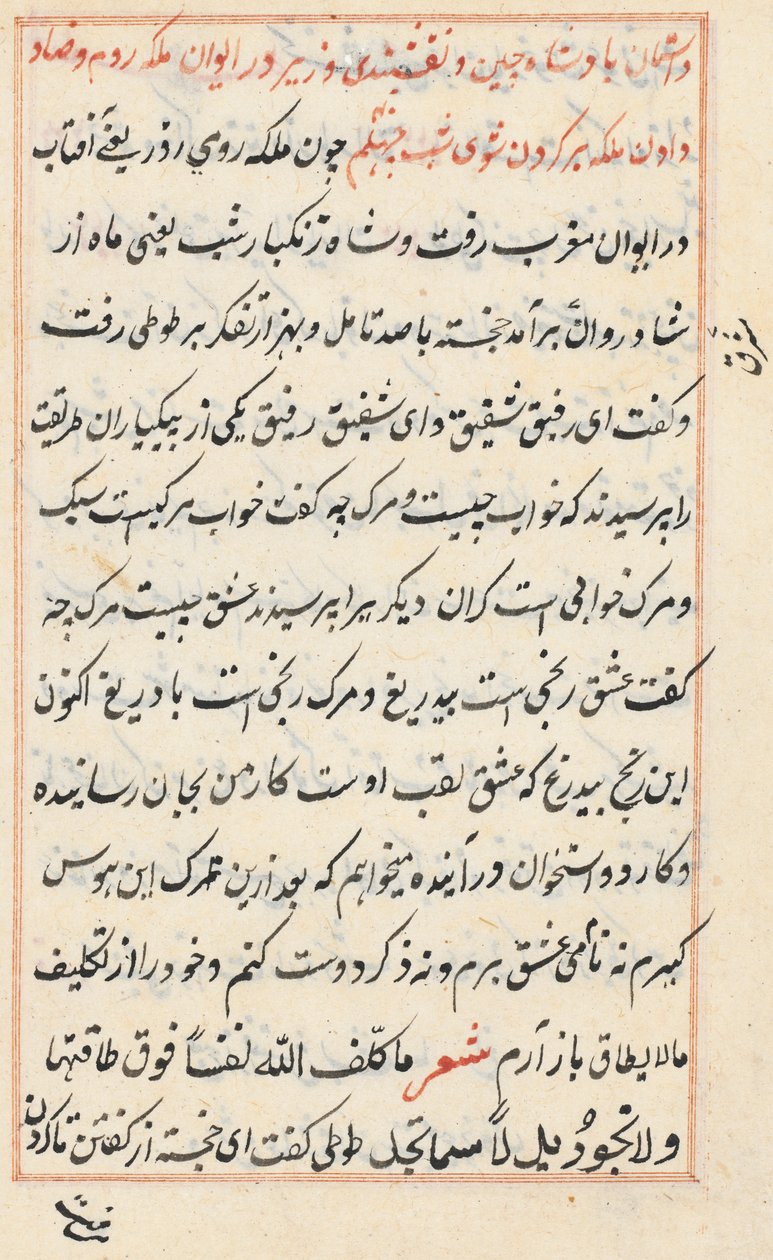 داستان بادشاه چین و نقشبندی وزیر در ایوان ملکه روم و ضاد
دادن ملکه بر کردن شوی شب چهلم چون ملکه روی روز یعنی آفتاب
در ایوان مغرب رفت و شاه زنکبار شب یعنی ماه از
شادروان برآمد خجسته با صد تامل و بهزار تفکر بر طوطی رفت
شرق
و کفت ای رفیق شفیق و ای شفیق رفیق یکی از طریقت
را پرسیدند که خواب چیست و مرک چه کفت خواب مرکیست سبک
و مرک خوابی است کران دیکریرا پرسیدند عشق چیست مرک چه
کفت عشق رنجی است بیدریغ و مرک رنجی است با دریغ اکنون
این رنج بیدرغ که عشق لقب اوست کار من بجان رسانیده
و کارد و استخوان درآینده میخواهم که بعد ازین ترک این هوس
کیرم نه نامی عشق برم و نه ذکر دوست کنم و خود را از تکلیف
مالا یطاق باز آرم شعر ما کلّف اللّه نفساً فوق طاقتها
ولا تجود ید الاّ بما تجد طوطی کفت ای خجسته از کفتن تا کردن